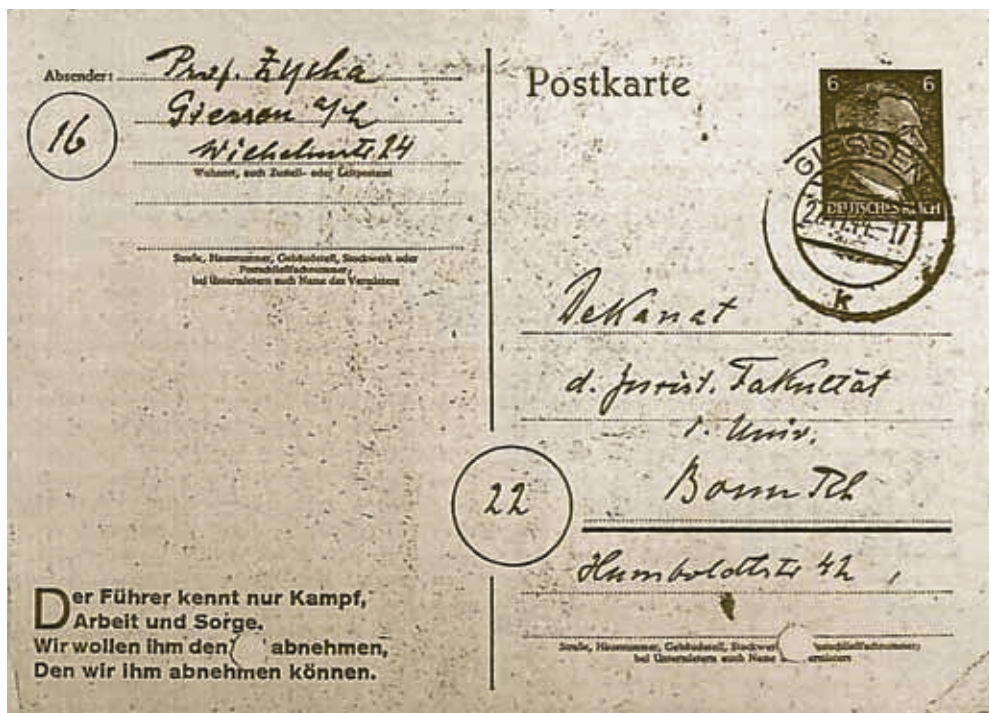 Absender: Prof. Zycha
16
Giessen a/L
Wilhelmstr 24
Wohnort, auch Zustell- oder Leitpostamt
Straße, Hausnummer, Gebäudeteil, Stockwerk oder
Postschließfachnummer;
bei Untermietern auch Name des Vermieters
Postkarte
6 6
DEUTSCHES REICH
GIESSEN
k
Dekanat
d. Jurist. Fakultät
d. Univ.
22
Bonn Rh
Humboldtstr 42
Straße, Hausnummer, Gebäudeteil,
bei Untermietern auch Name
Der Führer kennt nur Kampf,
Arbeit und Sorge.
Wir wollen ihm den abnehmen,
Den wir ihm abnehmen können.